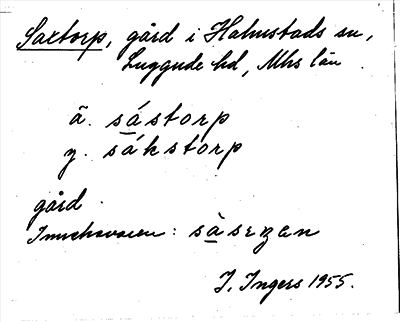 Saxtorp, gård i Halmstads sn,
Luggude hd, Mhs län
ä. såstorp
y. såkstorp
gård.
Innehavaren:
I. Ingers 1955.